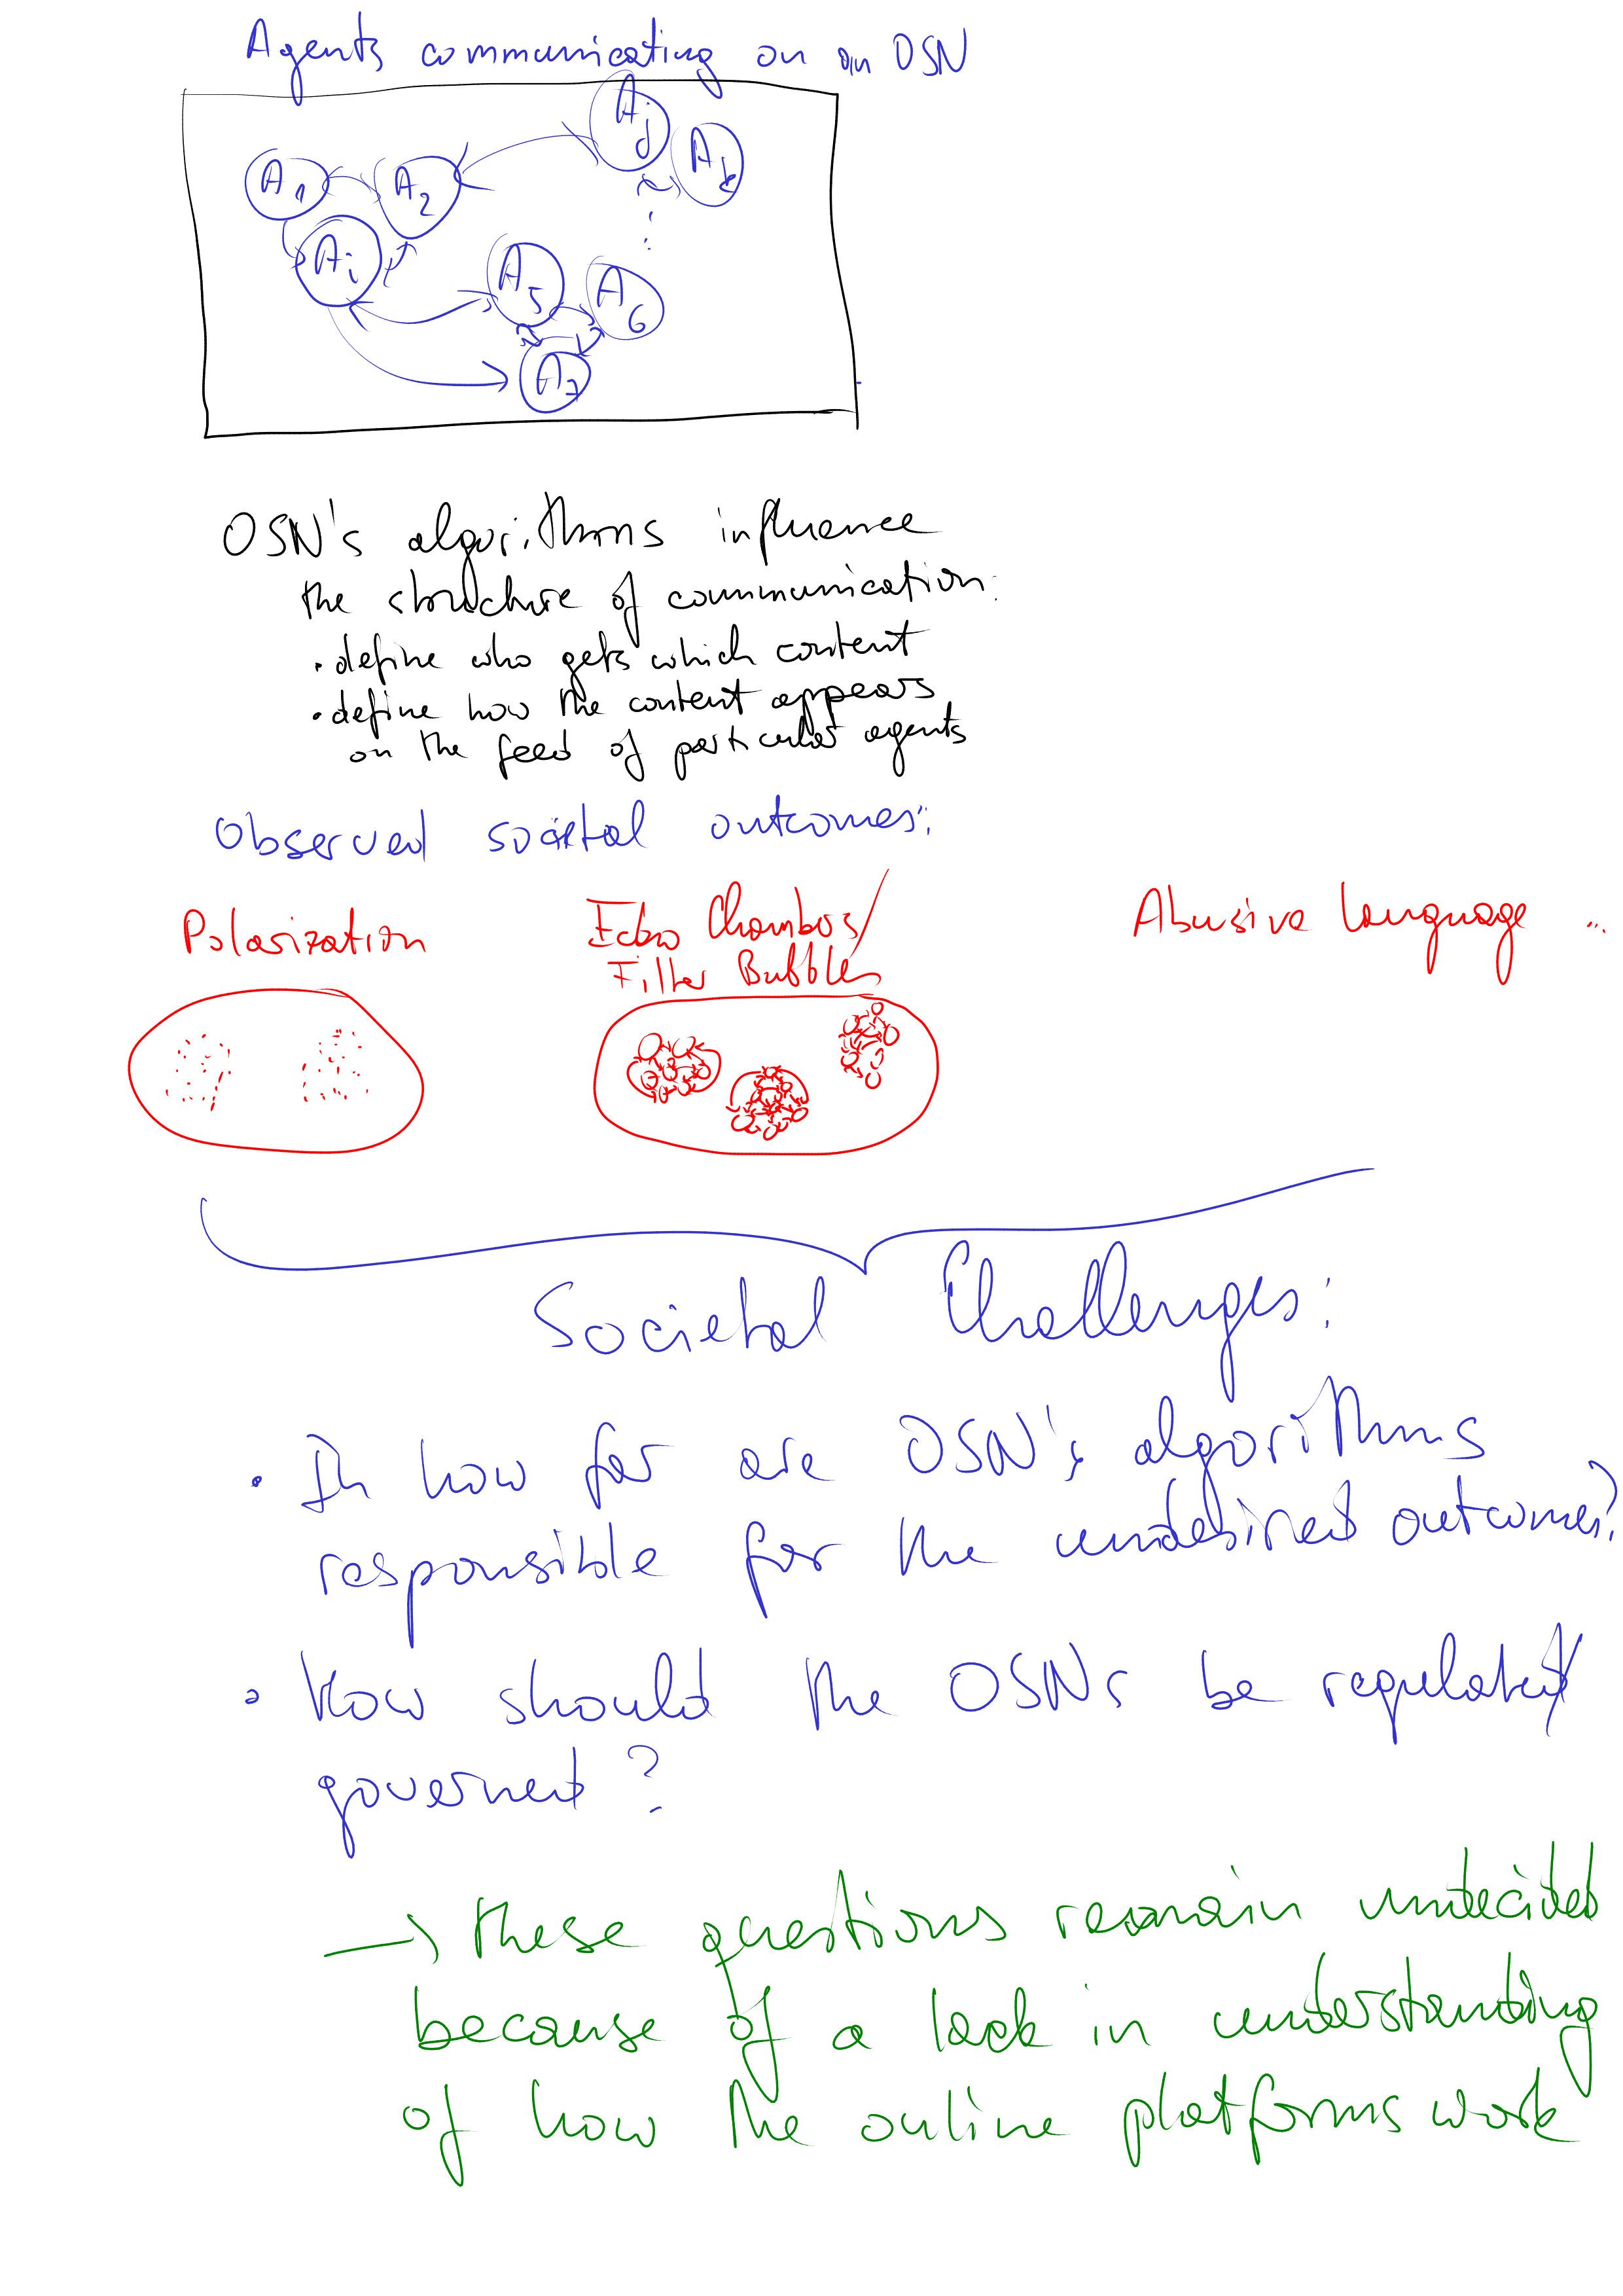 Agents communicating on an OSN
A1 A2 Aj Ak
Ai A5 A6
A7
OSN's algorithms influence
the structure of communication:
• define who gets which content
• define how the content appears
on the feed of particular agents
Observed societal outcomes:
Polarization Echo Chambers/ Abusive language ...
Filter Bubbles
Societal Challenges:
• In how far are OSN's algorithms
responsible for the undesired outcomes?
• How should the OSNs be regulated/
governed?
→ these questions remain undecided
because of a lack in understanding
of how the online platforms work